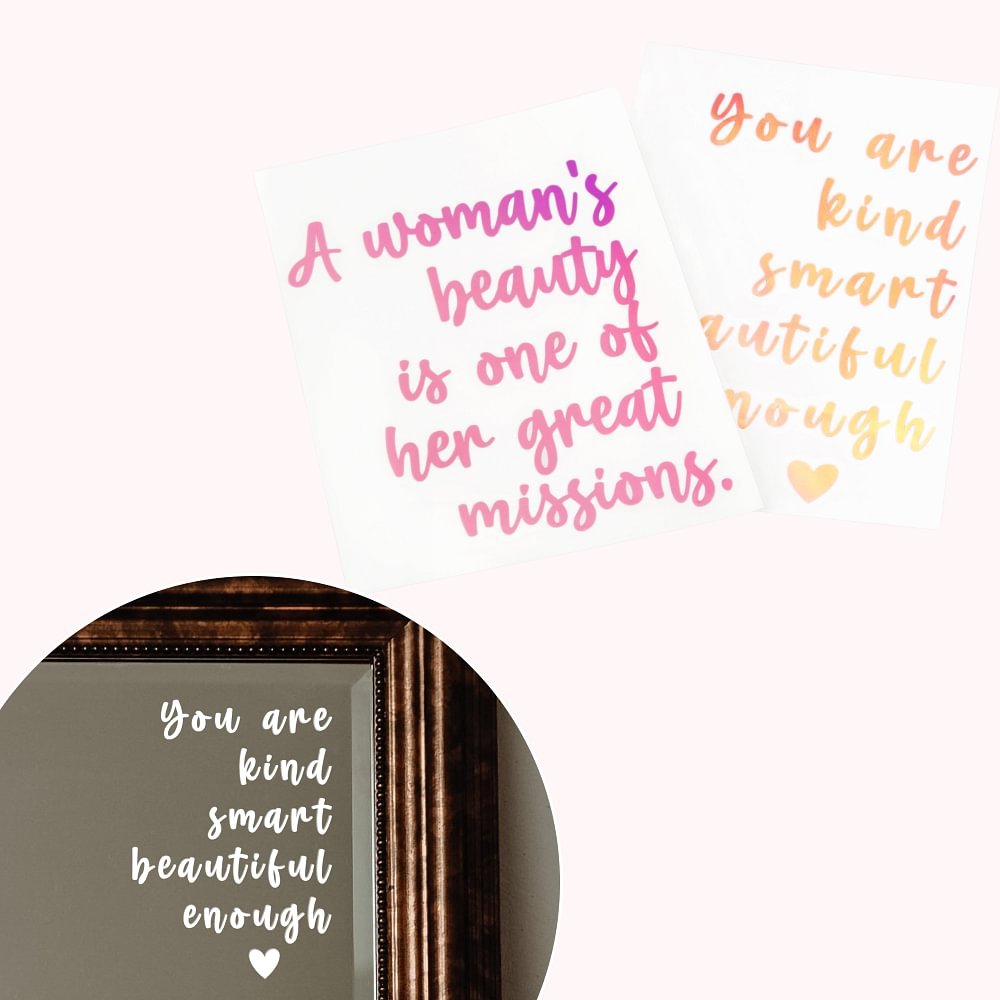 A woman's
beauty
is one of
her great
missions.
You are
kind
smart
autiful
nough
You are
kind
smart
beautiful
enough